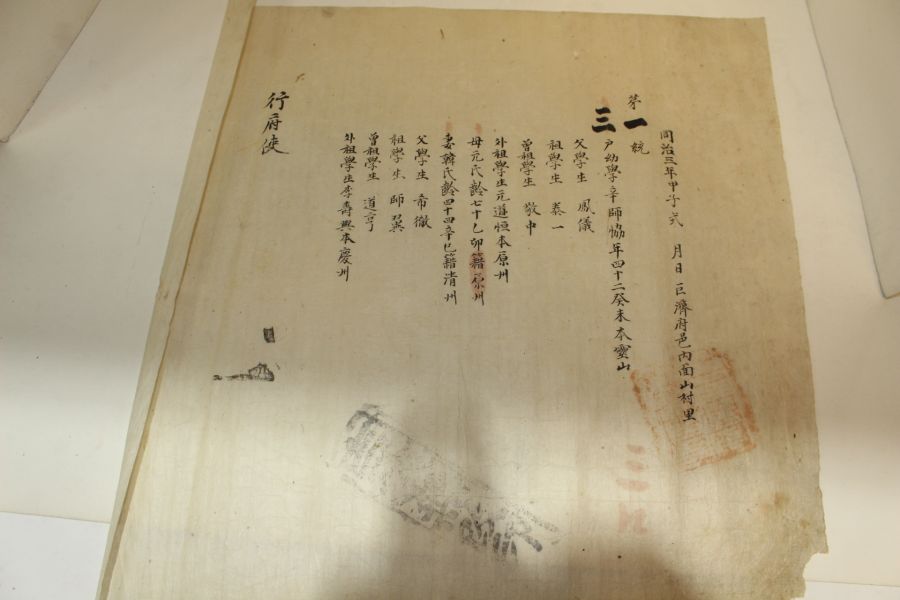 同治三年甲子式 月 日 巨濟府邑內面山村里
苐一統
三
戶幼學辛師協年四十二癸未本靈山
父學生 鳳儀
祖學生 泰一
曾祖學生 敬中
外祖學生元道恒本原州
母元氏齡七十乙卯籍原州
妻韓氏齡四十四辛巳籍清州
父學生 希徹
祖學生 師翼
曾祖學生 道亨
外祖學生李壽興本慶州
行府使